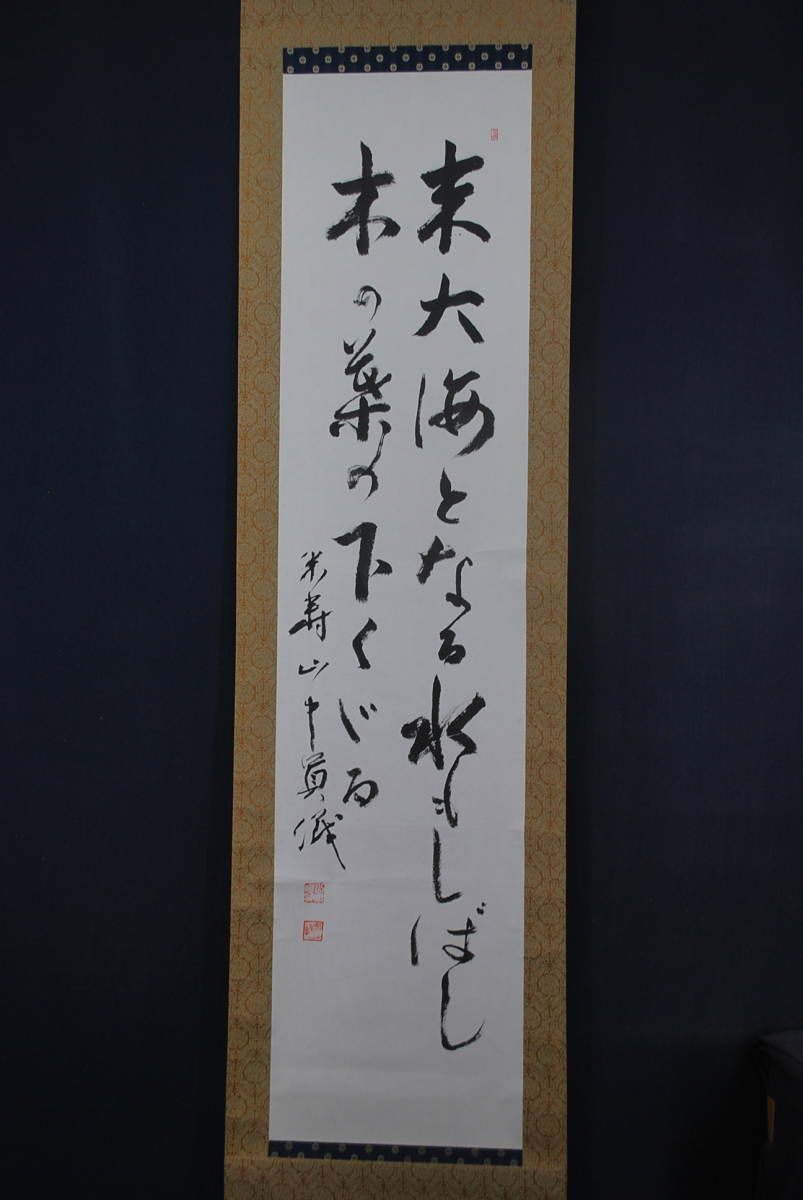 末大海となる水もしばし
木の葉の下くゞる
米寿山中貞儀